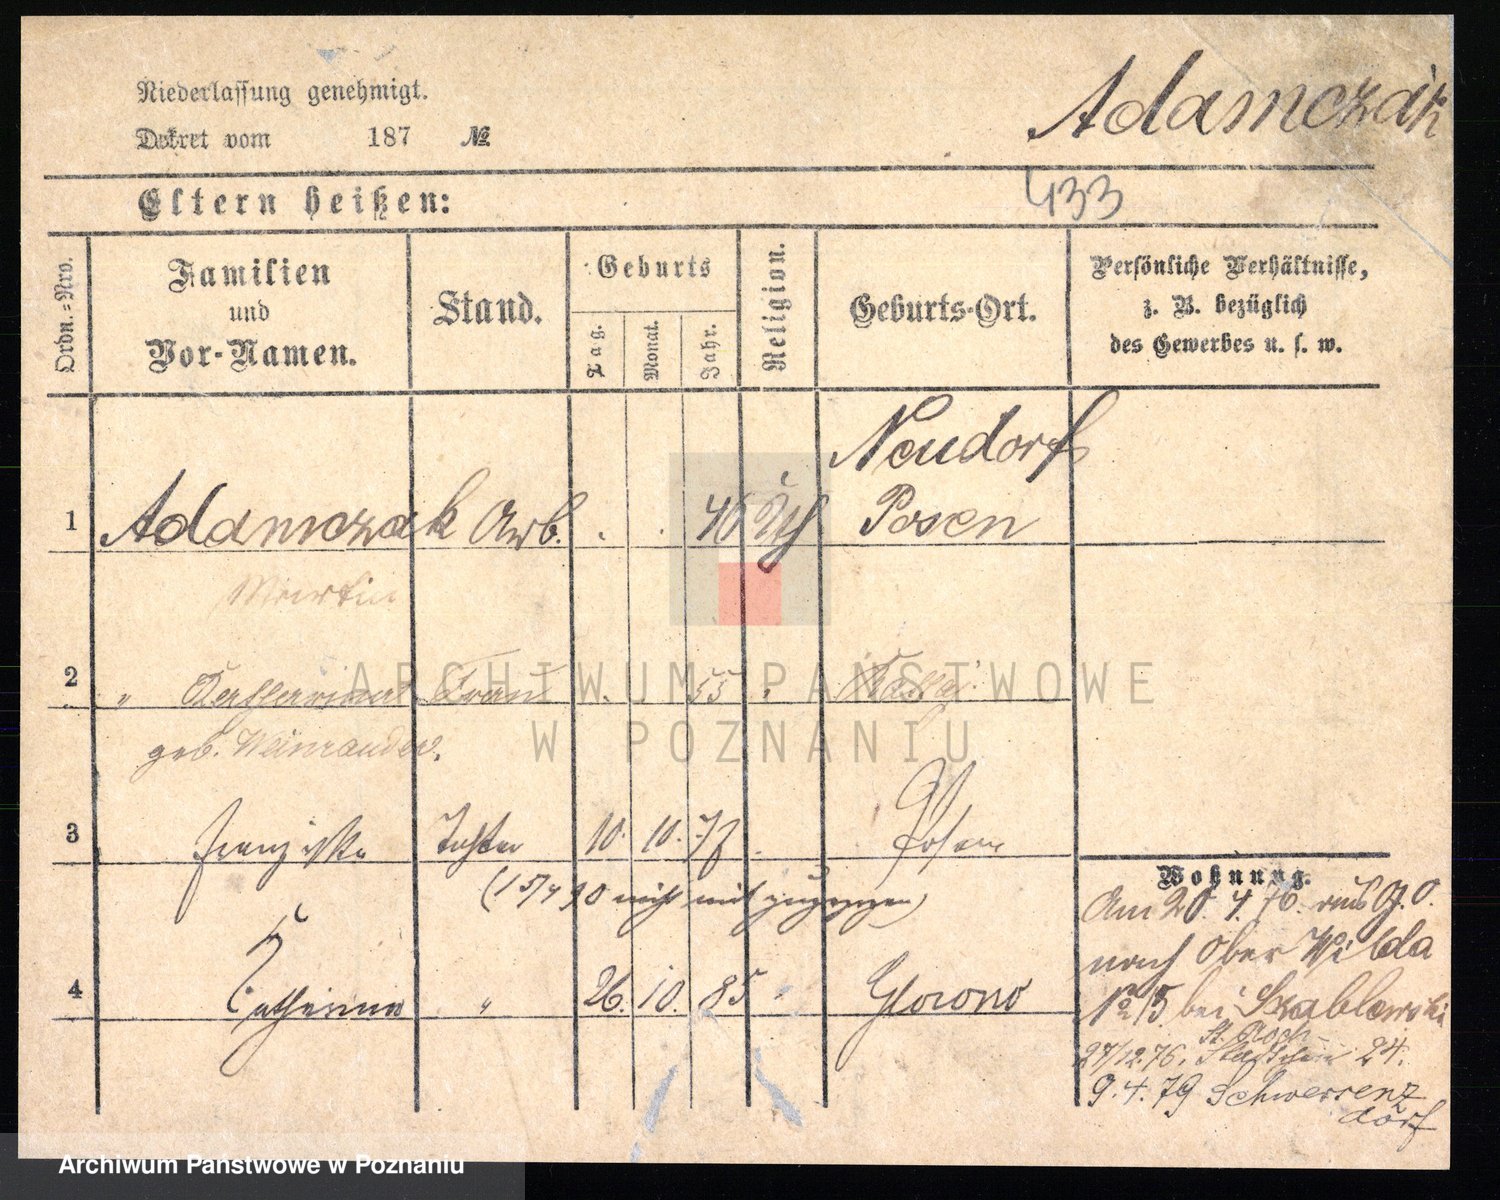 Niederlassung genehmigt.
Dekret vom 187 №
Adamczak
433
Eltern heißen:
Ordn.=Nro.
Familien
und
Vor-Namen.
Stand.
Geburts
Tag.
Monat.
Jahr.
Religion.
Geburts-Ort.
Persönliche Verhältnisse,
z. B. bezüglich
des Gewerbes u. s. w.
Neudorf
1 Adamczak Arb. . . 46 Posen
Martin
2 " Frau . 55 "
geb.
3 Franziska Tochter 10. 10. Posen
nicht mit zugezogen)
4 Catharina " 26. 10. 85 Glowno
Wohnung.
Am 20. 4. 76. aus G. O.
nach Ober Wilda
No 15 bei Szablewski
St. Roch
27/12.76. 24.
9.4.79 Schwersenz
dorf
ARCHIWUM PAŃSTWOWE
W POZNANIU
Archiwum Państwowe w Poznaniu